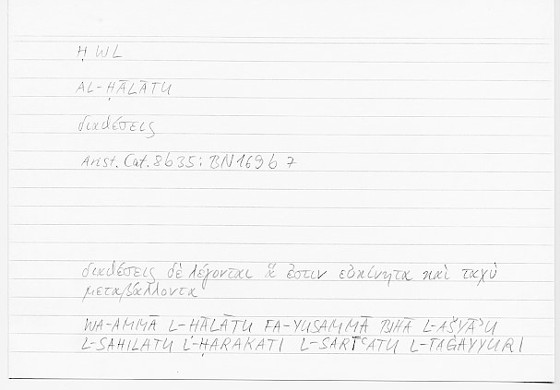 ḤWL
AL-ḤĀLĀTU
διαθέσεις
Arist. Cat. 8b35; BN169b7
διαθέσεις δὲ λέγονται ἅ ἐστιν εὐκίνητα καὶ ταχὺ
μεταβάλλοντα
WA-AMMĀ L-ḤĀLĀTU FA-YUSAMMĀ BIHĀ L-AŠYĀʾU
L-SAHILATU L-ḤARAKATI L-SARĪʿATU L-TAĠAYYURI